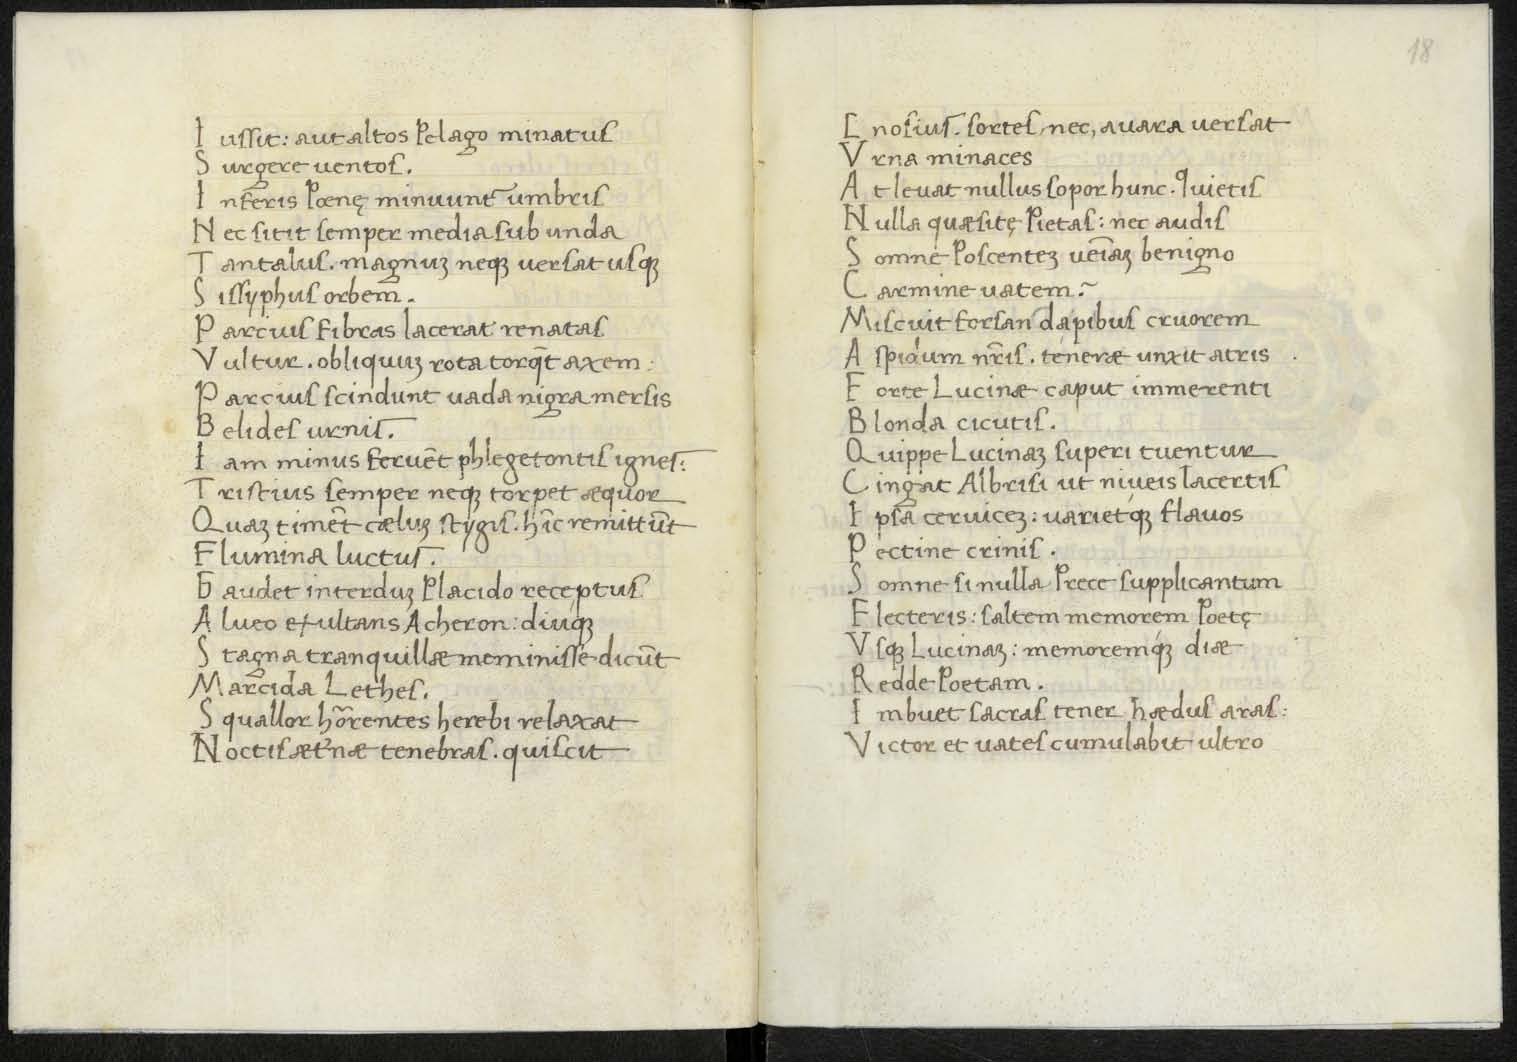 Iussit: aut altos Pelago minatus
Surgere uentos.
Inferis Poenę minuunt᷑ umbris
Nec sitit semper media sub unda
Tantalus. magnuꝫ neqꝫ uersat usqꝫ
Sissyphus orbem.
Parcius fibras lacerat renatas
Vultur. obliquuꝫ rota torq̃t axem:
Parcius scindunt uada nigra mersis
Belides urnis.
Iam minus feruẽt phlegetontis ignes:
Tristius semper neqꝫ torpet æquor
Quaꝫ timẽt cæluꝫ stygis. hĩc remittũt
Flumina luctus.
Gaudet interduꝫ Placido receptus
Alueo exultans Acheron: diuqꝫ
Stagna tranquillæ meminisse dicũt
Marcida Lethes.
Squallor hõrentes herebi relaxat
Noctis æt̃næ tenebras. quiscit
18
Enosius. sortes, nec, auara uersat
Vrna minaces
At leuat nullus sopor hunc. Quietis
Nulla quæsitę Pietas: nec audis
Somne Poscenteꝫ uẽiaꝫ benigno
Carmine uatem.
Miscuit forsan dapibus cruorem
Aspidum nr̃is. teneræ unxit atris
Forte Lucinæ caput immerenti
Blonda cicutis.
Quippe Lucinaꝫ superi tuentur
Cingat Albrisi ut niueis lacertis
Ipsa ceruiceꝫ: uarietqꝫ flauos
Pectine crinis.
Somne si nulla Prece supplicantum
Flecteris: saltem memorem Poetę
Vsqꝫ Lucinaꝫ: memoremqꝫ diæ
Redde Poetam.
Imbuet sacras tener hædus aras:
Victor et uates cumulabit ultro